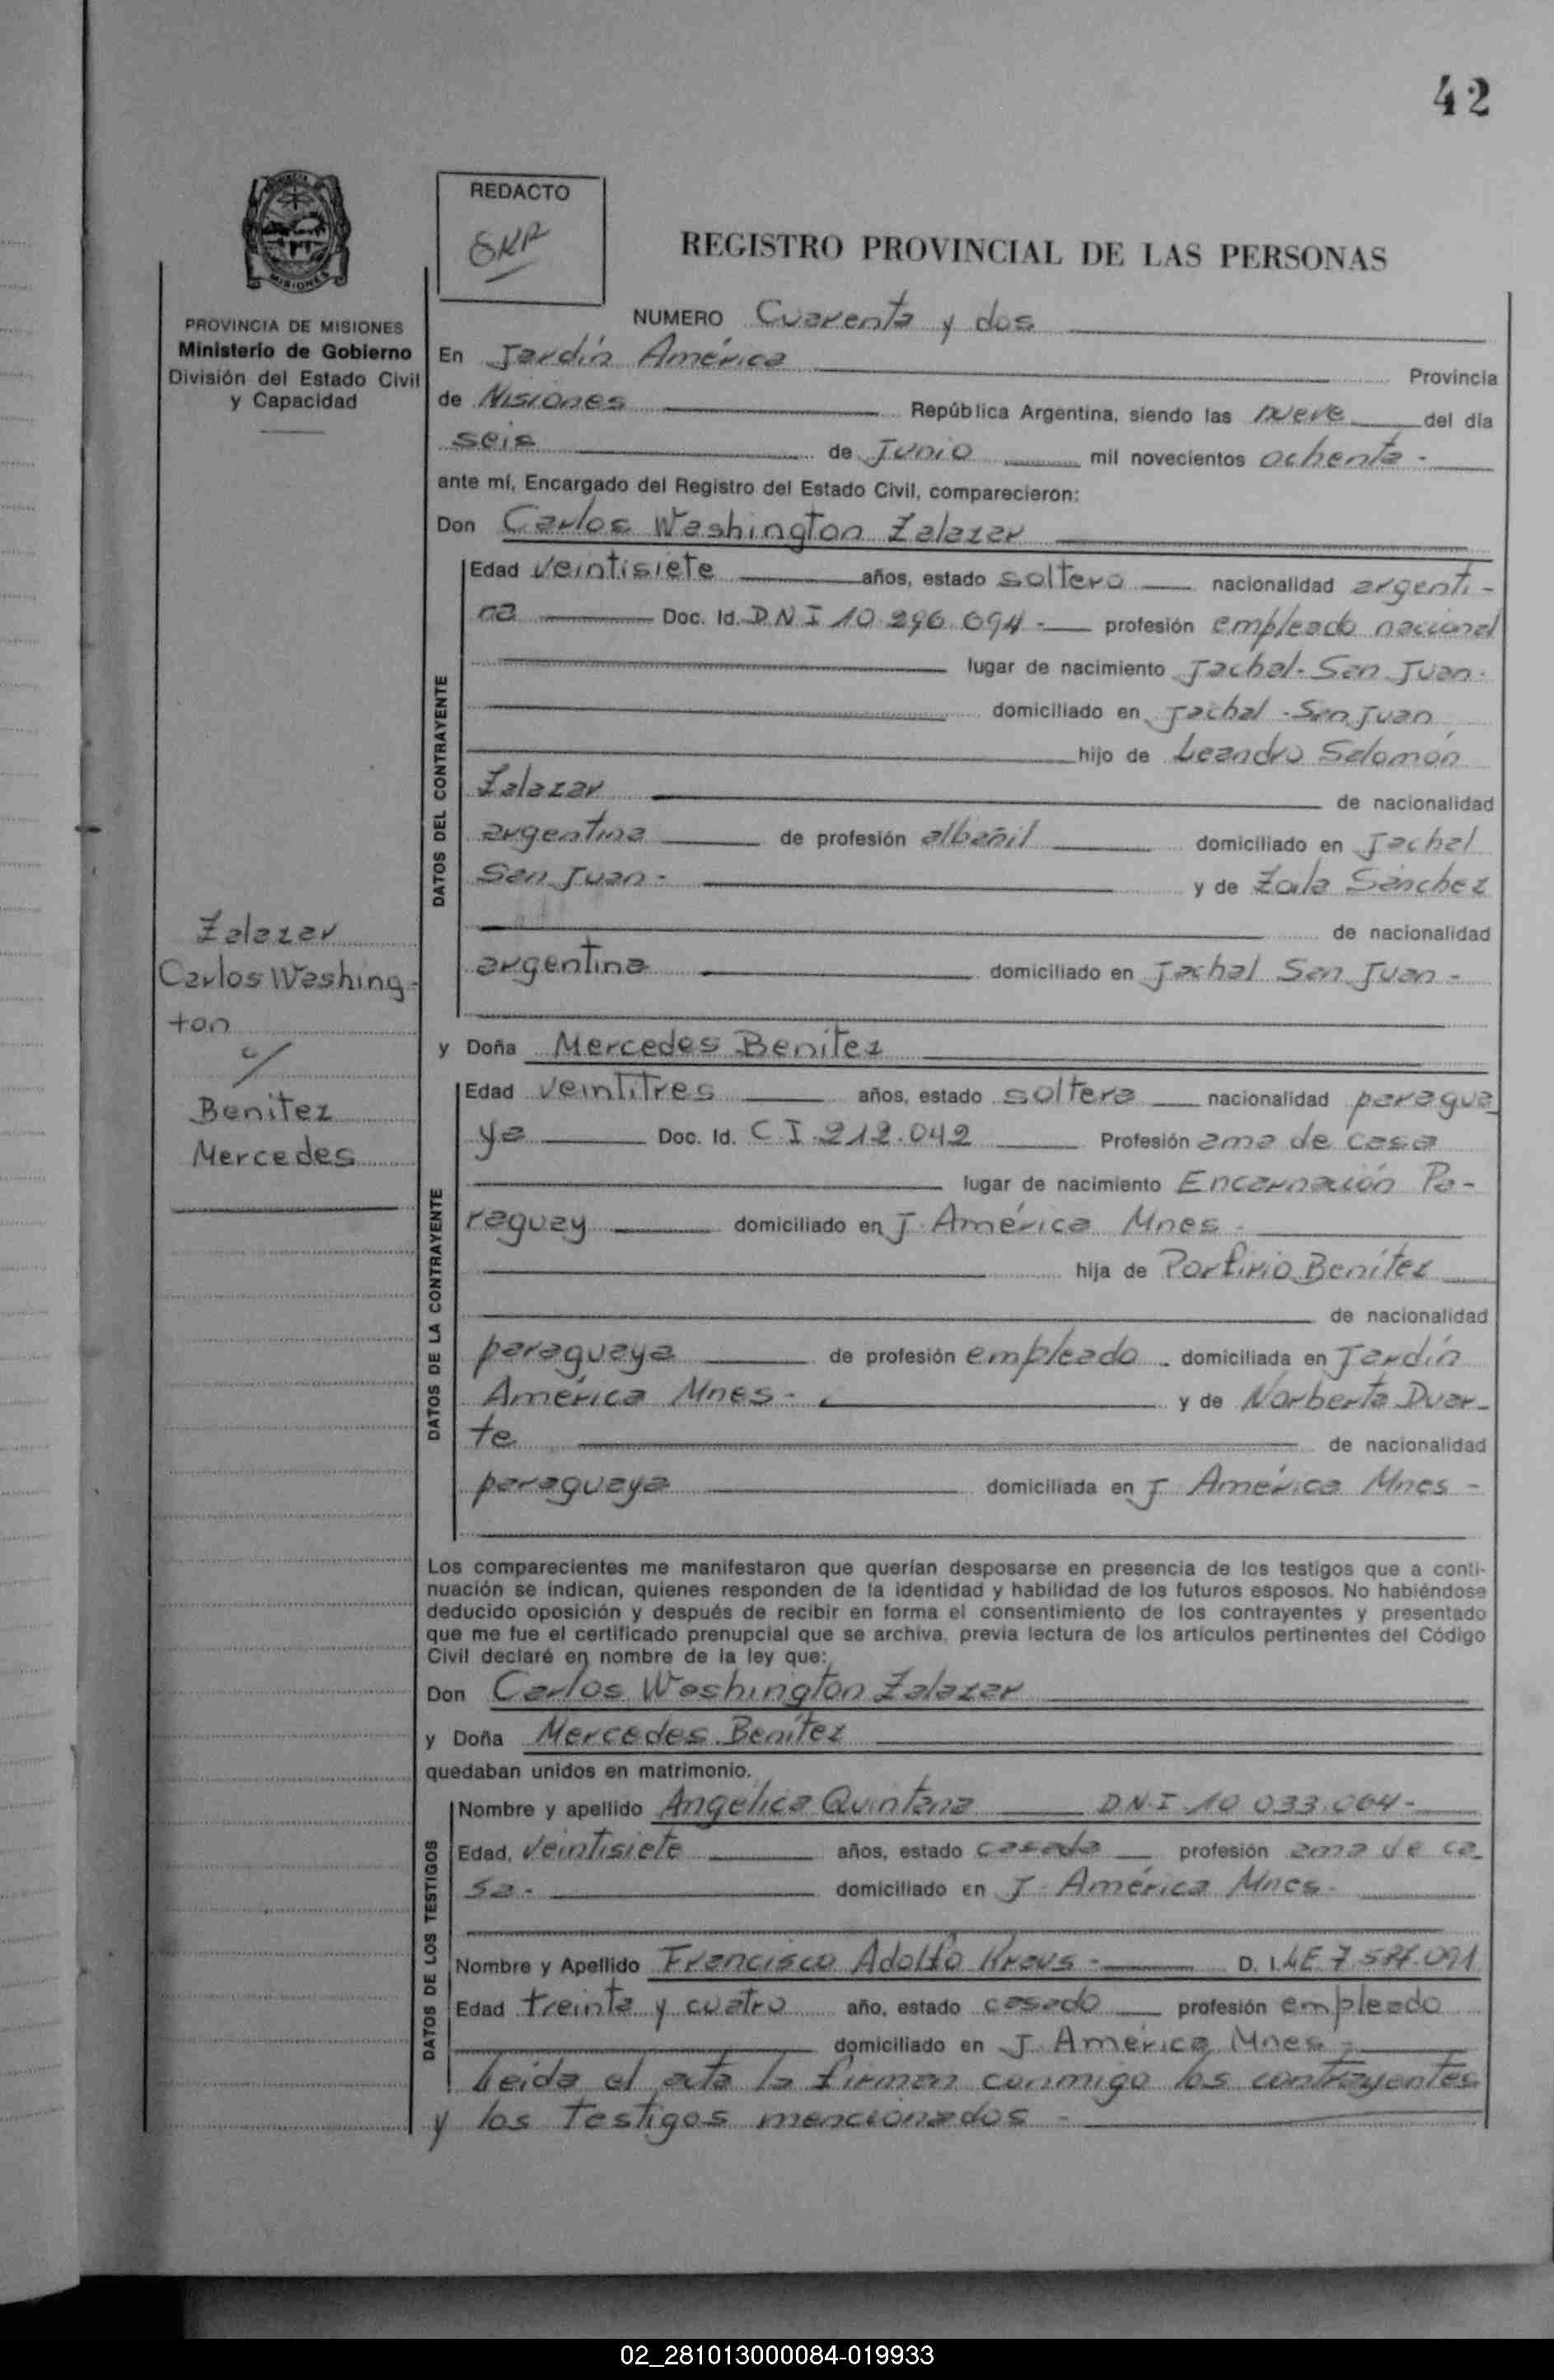 42
REDACTO
REGISTRO PROVINCIAL DE LAS PERSONAS
MISIONES
PROVINCIA DE MISIONES
Ministerio de Gobierno
División del Estado Civil
y Capacidad
NUMERO Cuarenta y dos
En Jardín América Provincia
de Misiones República Argentina, siendo las nueve del día
seis de Junio mil novecientos ochenta -
ante mí, Encargado del Registro del Estado Civil, comparecieron:
Don Carlos Washington Zalazar
DATOS DEL CONTRAYENTE
Edad veintisiete años, estado soltero nacionalidad argenti-
na Doc. Id. DNI 10.296.694 - profesión empleado nacional
lugar de nacimiento Jachal - San Juan.
domiciliado en Jachal - San Juan
hijo de Leandro Salomón
Zalazar de nacionalidad
argentina de profesión albañil domiciliado en Jachal
San Juan - y de Zoila Sánchez
de nacionalidad
argentina domiciliado en Jachal San Juan -
Zalazar
Carlos Washing-
ton
c/
Benitez
Mercedes
y Doña Mercedes Benítez
DATOS DE LA CONTRAYENTE
Edad veintitres años, estado soltera nacionalidad paragua
ya Doc. Id. C I. 212.042 Profesión ama de casa
lugar de nacimiento Encarnación Pa-
raguay domiciliado en J. América Mnes -
hija de Porfirio Benítez
de nacionalidad
paraguaya de profesión empleado - domiciliada en Jardín
América Mnes - y de Norberta Duar-
te de nacionalidad
paraguaya domiciliada en J. América Mnes -
Los comparecientes me manifestaron que querían desposarse en presencia de los testigos que a conti-
nuación se indican, quienes responden de la identidad y habilidad de los futuros esposos. No habiéndose
deducido oposición y después de recibir en forma el consentimiento de los contrayentes y presentado
que me fue el certificado prenupcial que se archiva, previa lectura de los artículos pertinentes del Código
Civil declaré en nombre de la ley que:
Don Carlos Washington Zalazar
y Doña Mercedes Benítez
quedaban unidos en matrimonio.
DATOS DE LOS TESTIGOS
Nombre y apellido Angélica Quintana D.N.I 10.033.064 -
Edad, veintisiete años, estado casada profesión ama de ca-
sa - domiciliado en J. América Mnes -
Nombre y Apellido Francisco Adolfo Kraus - D. I. LE 7.
Edad treinta y cuatro año, estado casado profesión empleado
domiciliado en J. América Mnes -
Leída el acta la firman conmigo los contrayentes
y los testigos mencionados -
02_281013000084-019933